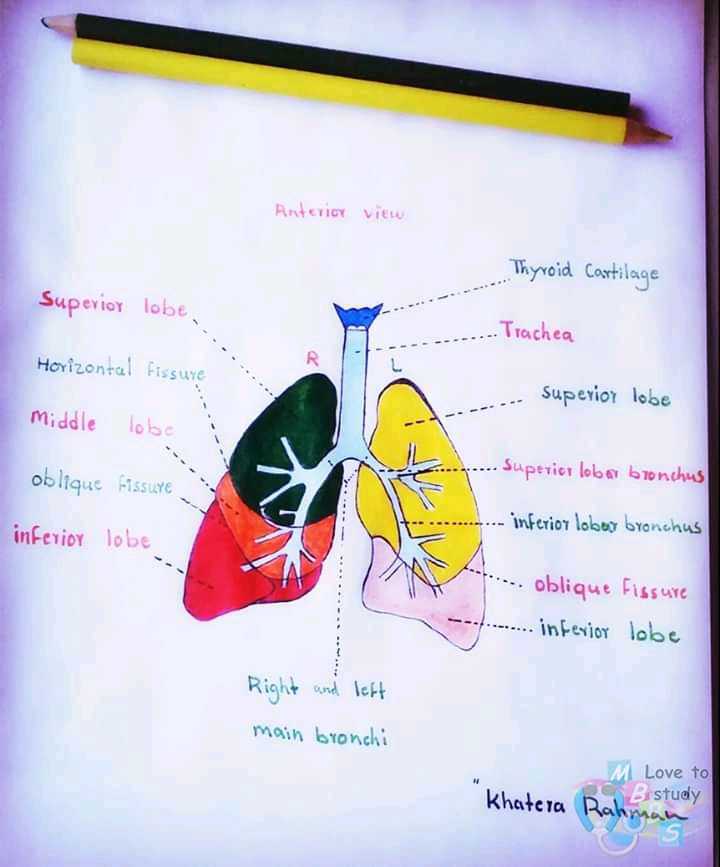 Anterior view
Thyroid Cartilage
Superior lobe
Trachea
R
L
Horizontal fissure
Superior lobe
Middle lobe
Superior lobar bronchus
oblique fissure
inferior lobar bronchus
inferior lobe
oblique fissure
inferior lobe
Right and left
main bronchi
M Love to
B study
B
S
"Khatera Rahman